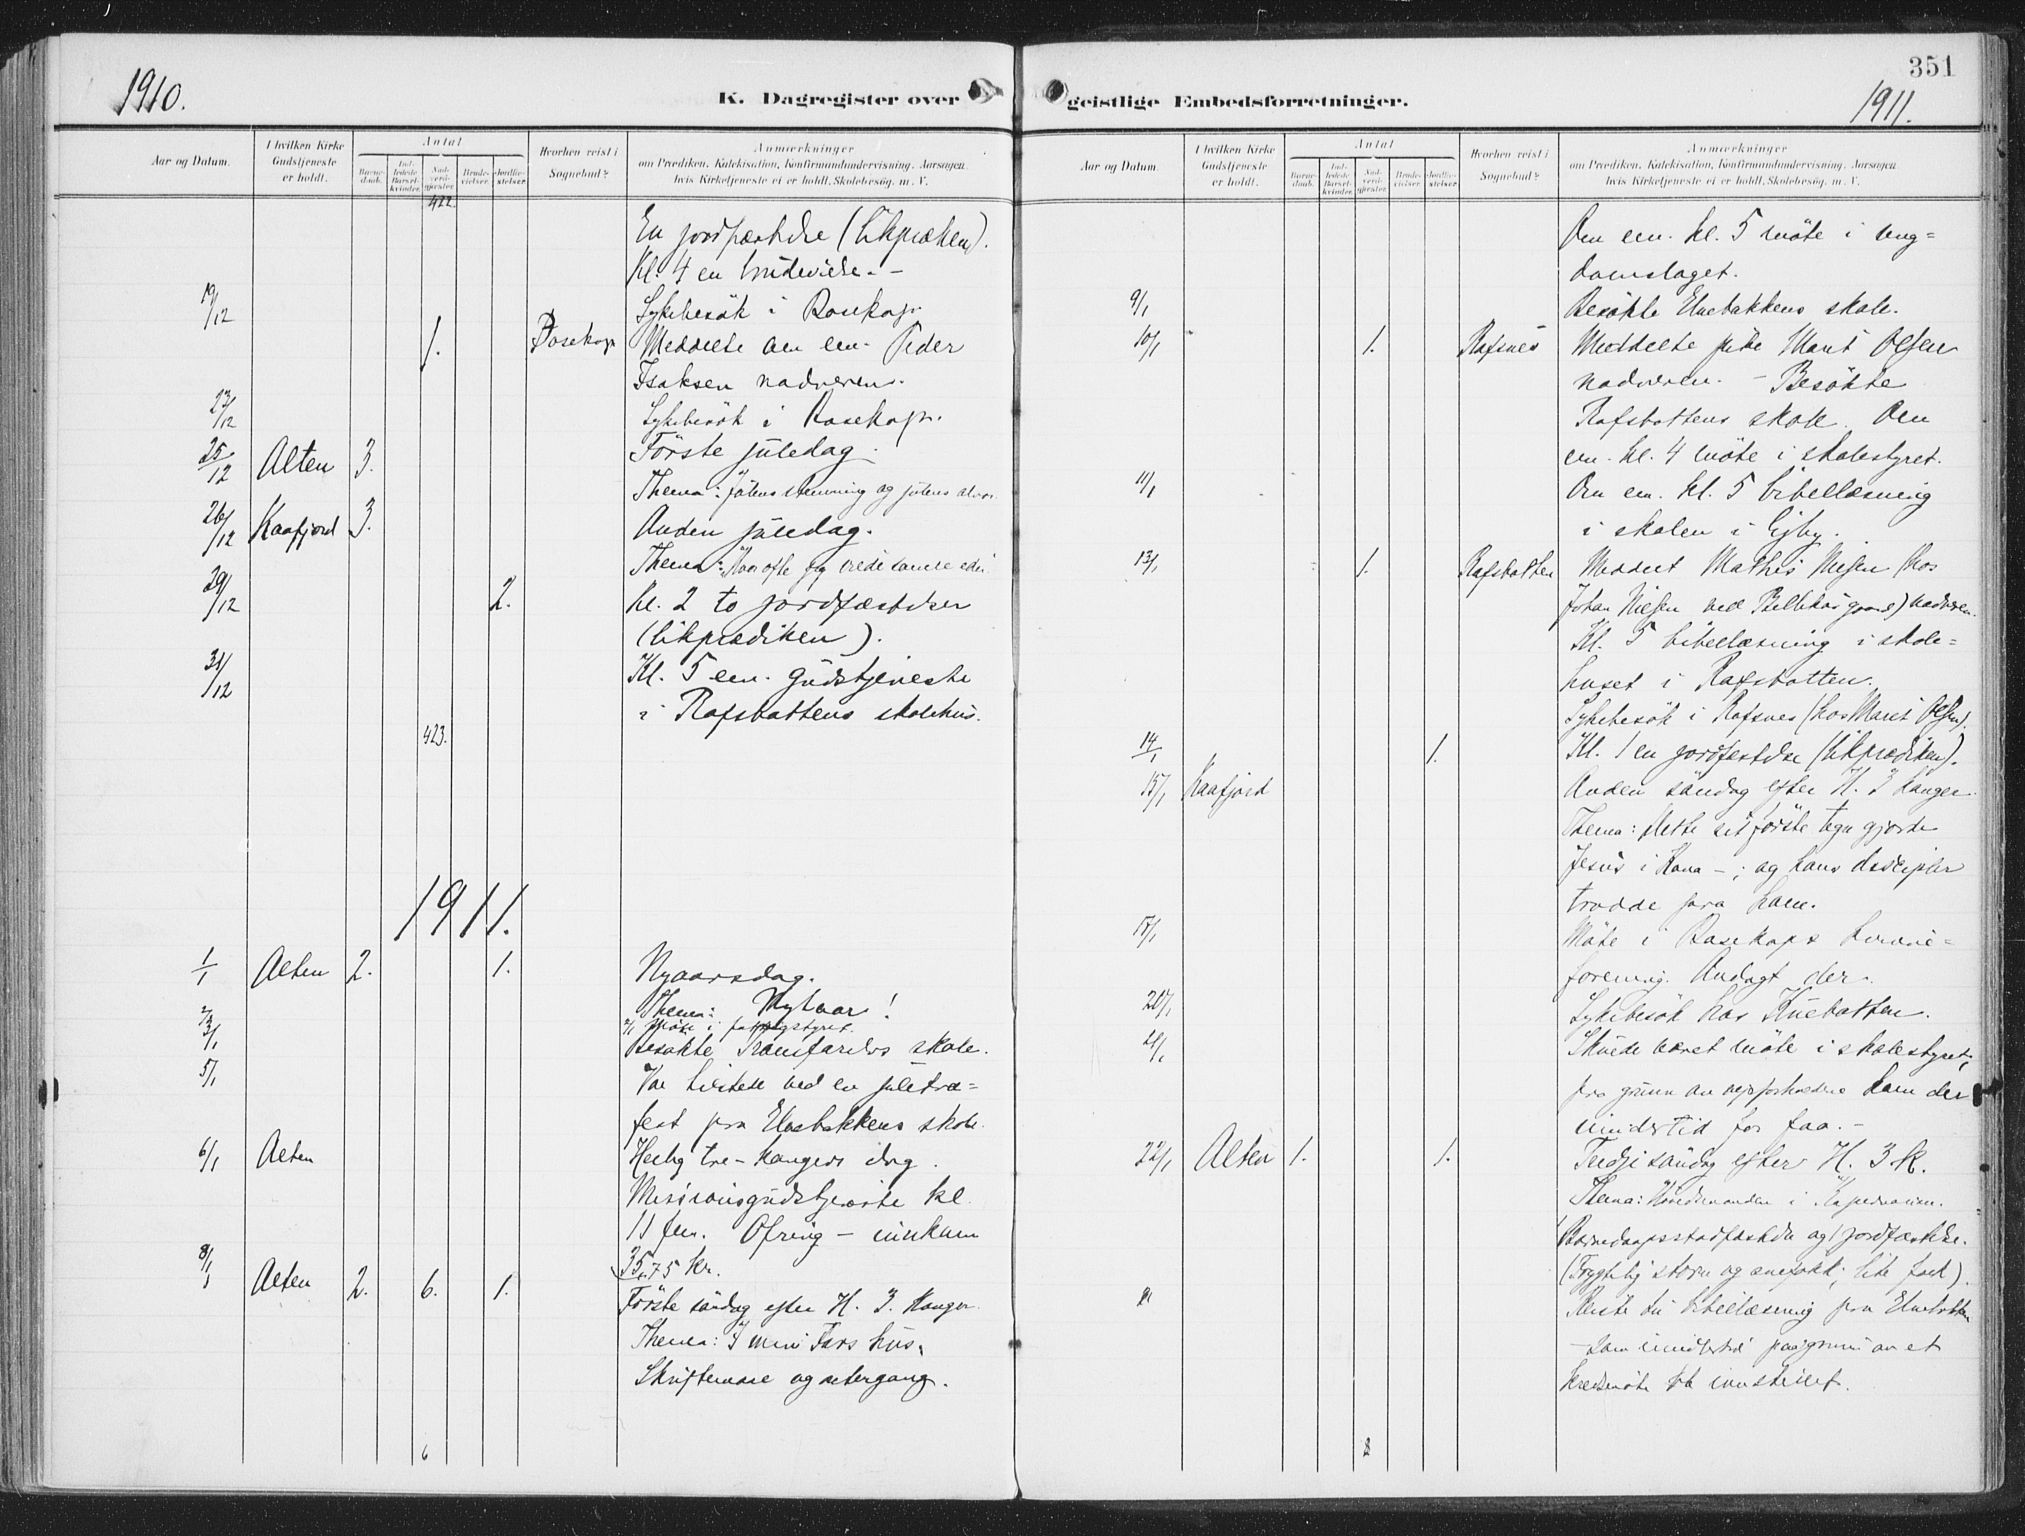 1910.
K. Dagregister over
Aar og Datum.
I hvilken Kirke Gudstjeneste er holdt.
Antal
Barnedaab.
Indledede Barselkvinder.
Nadverdgjester.
Brudevielser.
Jordfæstelser.
Hvorhen reist i Sognebud?
Anmærkninger
om Prædiken, Katekisation, Konfirmandundervisning, Aarsagen
hvis Kirketjeneste ei er holdt, Skolebesøg, m. V.
422.
En jordfæstelse (likpræken).
Kl. 4 en brudevielse. -
19/12 Sykebesök i Bosekop.
1. Bosekop Meddelte om em. Peder
Isaksen nadveren.
23/12 Sykebesök i Bosekop.
25/12 Alten 3. Förste juledag.
Thema: Julens stemning og julens alvor
26/12 Kaafjord 3. Anden juledag.
Thema: Hvor ofte jeg vilde samle eder
29/12 2. Kl. 2 to jordfæstelser
(likprædiken).
31/12 Kl. 5 em. gudstjeneste
i Rafsbottens skolehus.
423.
1911.
1/1 Alten 2. 1. Nyaarsdag.
Thema: Nytaar!
2/1 2/1 Möte i fattigstyret.
3/1 Besökte Tranfarelvs skole.
5/1 Var tilstede ved en juletræ=
fest paa Elvebakkens skole.
6/1 Alten Hellig tre-kongers dag.
Missionsgudstjeneste kl.
11 fm. Ofring - innkom
35.75 kr.
8/1 Alten 2. 6. 1.
Förste söndag efter H. 3. Konger.
Thema: I min Fars hus.
Skriftemaal og altergang.
6
351
geistlige Embedsforretninger.
1911.
Aar og Datum.
I hvilken Kirke Gudstjeneste er holdt.
Antal
Barnedaab.
Indledede Barselkvinder.
Nadverdgjester.
Brudevielser.
Jordfæstelser.
Hvorhen reist i Sognebud?
Anmærkninger
om Prædiken, Katekisation, Konfirmandundervisning, Aarsagen
hvis Kirketjeneste ei er holdt, Skolebesøg, m. V.
Om em. kl. 5 möte i ung=
domslaget.
9/1 Besökte Elvebakkens skole.
10/1 1. Rafsnes Meddelte pike Marit Olsen
nadveren. - Besökte
Rafsbottens skole. Om
em. kl. 4 möte i skolestyret.
11/1 Om em. kl. 5 bibellæsning
i skolen i Elvby.
13/1 1. Rafsbotten Meddelt Mathis Nilsen (hos
Johan Nilsen ved) nadveren.
Kl. 5 bibellæsning i skole=
huset i Rafsbotten.
Sykebesök i Rafsnes (hos Marit Olsen).
14/1 1. Kl. 1 en jordfæstelse (likprædiken).
15/1 Kaafjord Anden söndag efter H. 3 konger.
Thema: Dette sit förste tegn gjorde
Jesus i Kana -; og hans discipler
trodde paa ham.
17/1 Möte i Bosekops kvinde=
forening. Andagt der.
20/1 Sykebesök hos
21/1 Skulde været möte i skolestyret,
paa grunn av veiforholdene kom der
imidlertid for faa. -
22/1 Alten 1. 1. Tredje söndag efter H. 3 K.
Thema: Hövedsmanden i Kapernaum.
1 Barnedaapsstadfæstelse og 1 jordfæstelse.
(Frygtelig storm og snefokk; lite folk).
Reiste til bibellæsning paa Elvebakken
- som imidlertid paa grunn av et
kredsmöte blev innstillet.
8